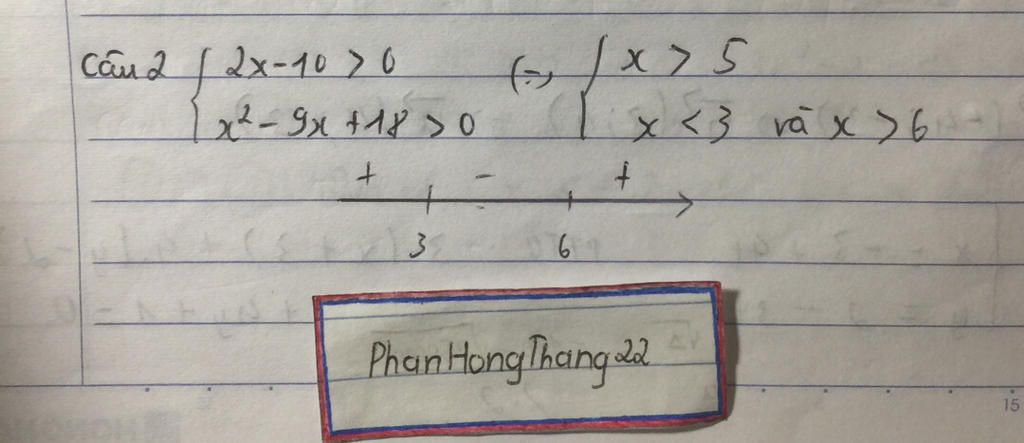 Câu 2 { 2x-10 > 0 (÷) { x > 5
x² - 9x + 18 > 0 x < 3 và x > 6
+ - +
3 6
PhanHongThang22
15